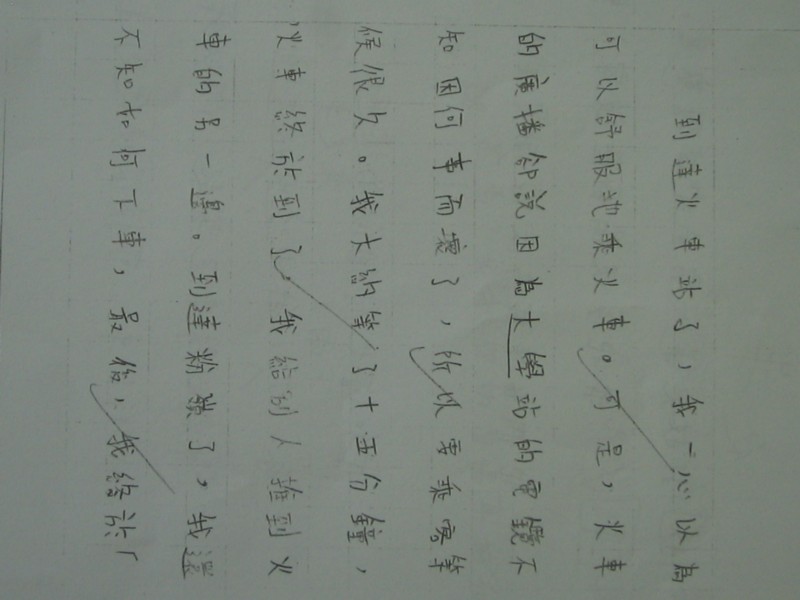 到達火車站了，我一心以為
可以舒服地乘火車。可是，火車
的廣播卻說因為大學站的電纜不
知因何事而壞了，所以要乘客等
候很久。我大約等了十五分鐘，
火車終於到了。我給別人推到火
車的另一邊。到達粉嶺了，我還
不知如何下車，最後，我終於